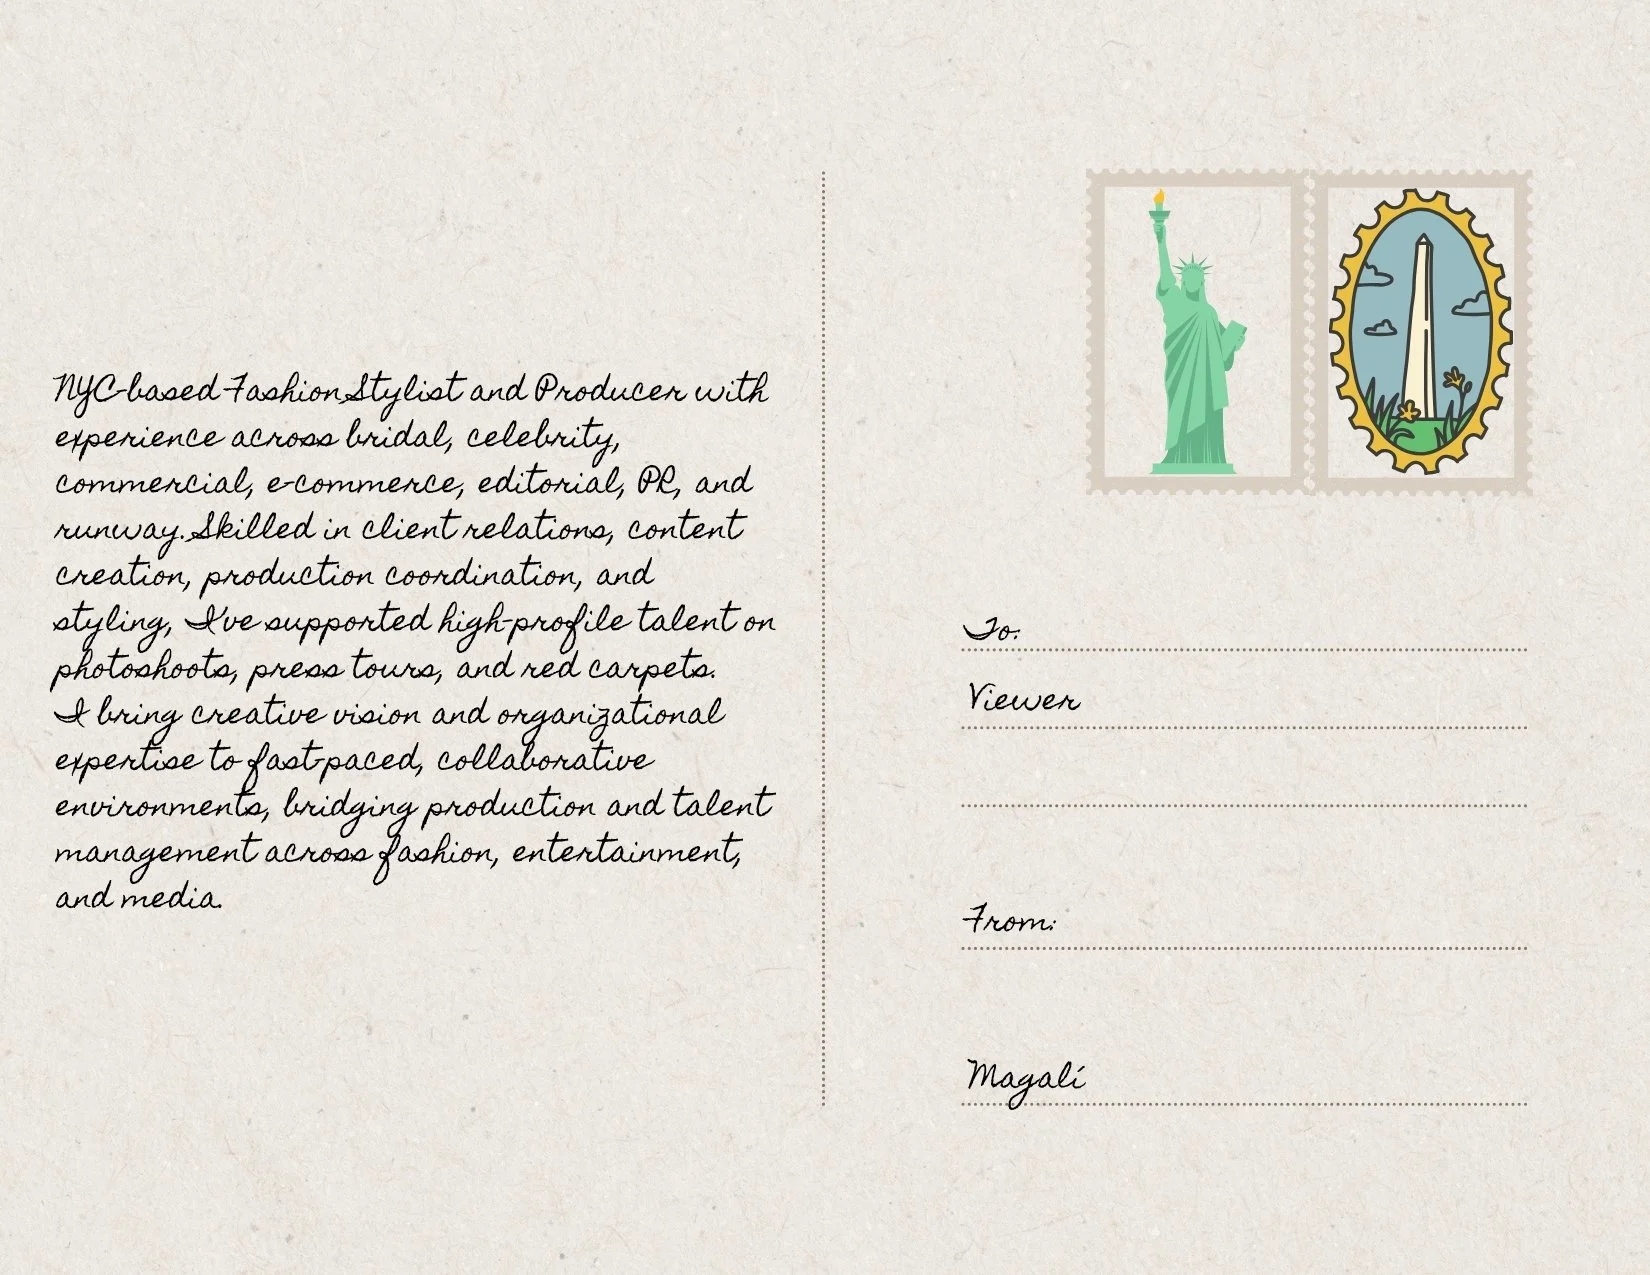 NYC-based Fashion Stylist and Producer with
experience across bridal, celebrity,
commercial, e-commerce, editorial, PR, and
runway. Skilled in client relations, content
creation, production coordination, and
styling, I've supported high-profile talent on
photoshoots, press tours, and red carpets.
I bring creative vision and organizational
expertise to fast-paced, collaborative
environments, bridging production and talent
management across fashion, entertainment,
and media.
To:
Viewer
From:
Magalí